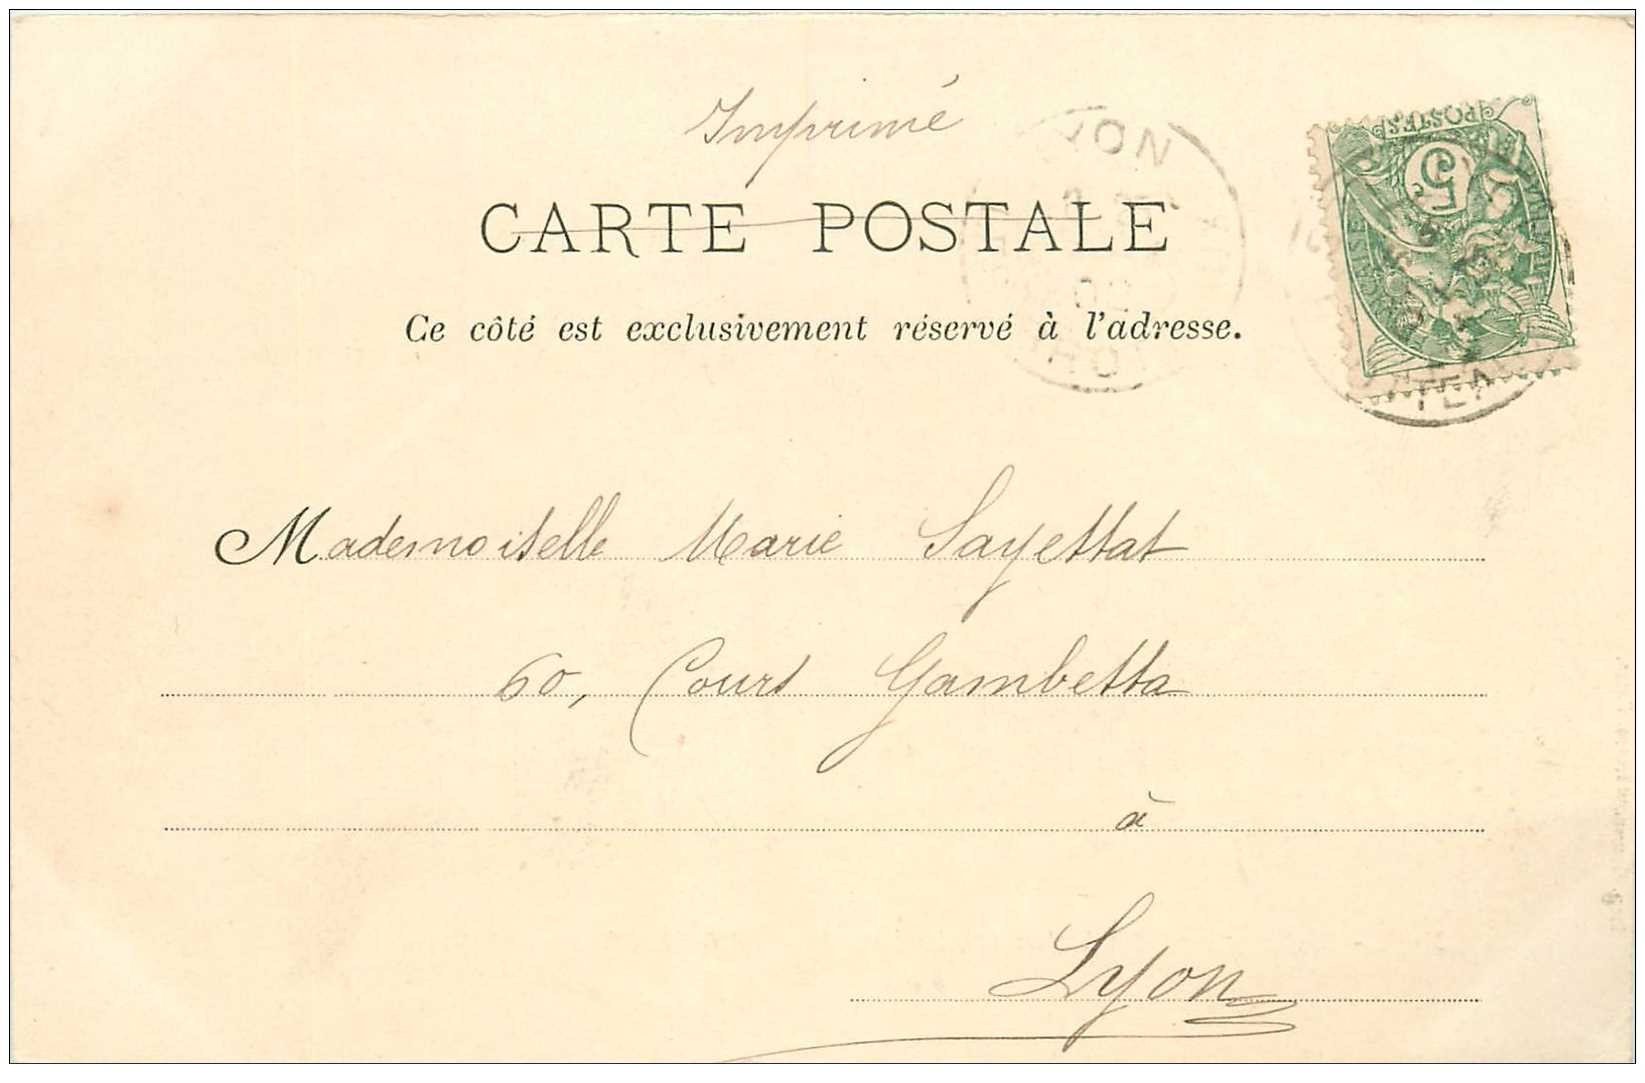 Imprimé
CARTE POSTALE
Ce côté est exclusivement réservé à l'adresse.
POSTES
5c
Mademoiselle Marie Sayettat
60, Cours Gambetta
à
Lyon